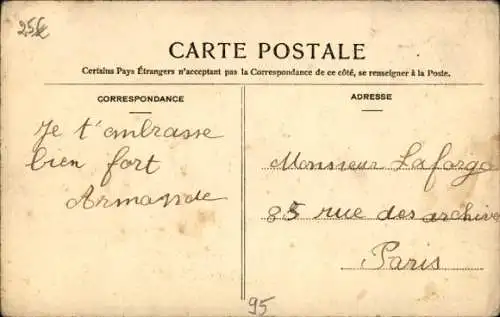 25€
CARTE POSTALE
Certains Pays Étrangers n'acceptant pas la Correspondance de ce côté, se renseigner à la Poste.
CORRESPONDANCE
Je t'embrasse
bien fort
Armande
ADRESSE
Monsieur Laforge
85 rue des archives
Paris
95